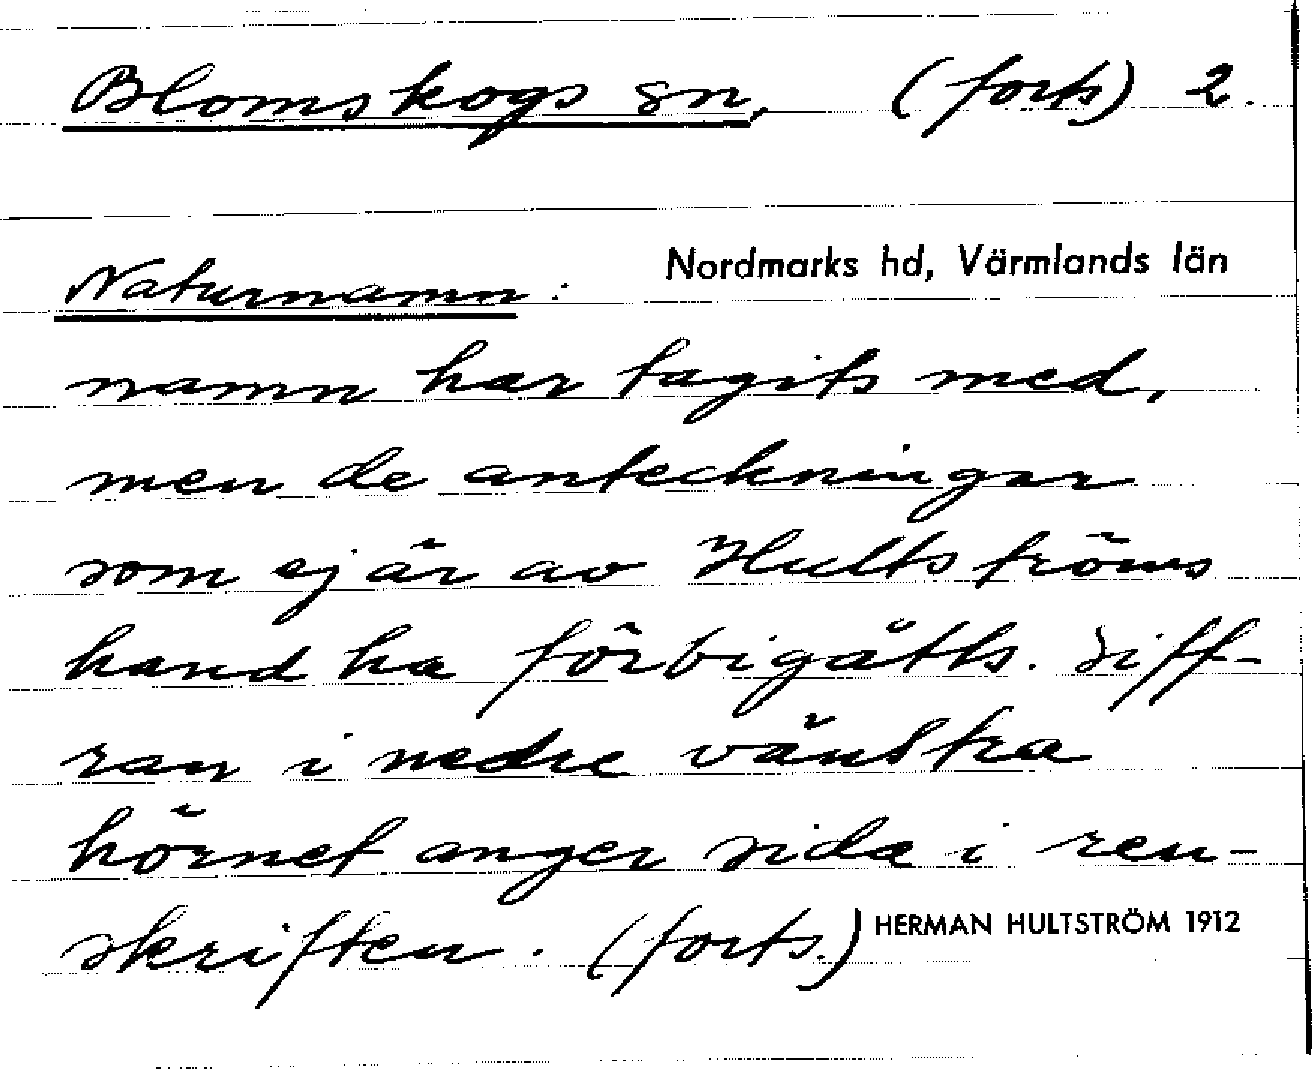 Blomskogs sn, (forts) 2.
Nordmarks hd, Värmlands län
Naturnamn:
namn har tagits med,
men de anteckningar
som ej är av Hultströms
hand ha förbigåtts. Siff-
ran i nedre vänstra
hörnet anger sida i ren-
skriften. (forts.)
HERMAN HULTSTRÖM 1912